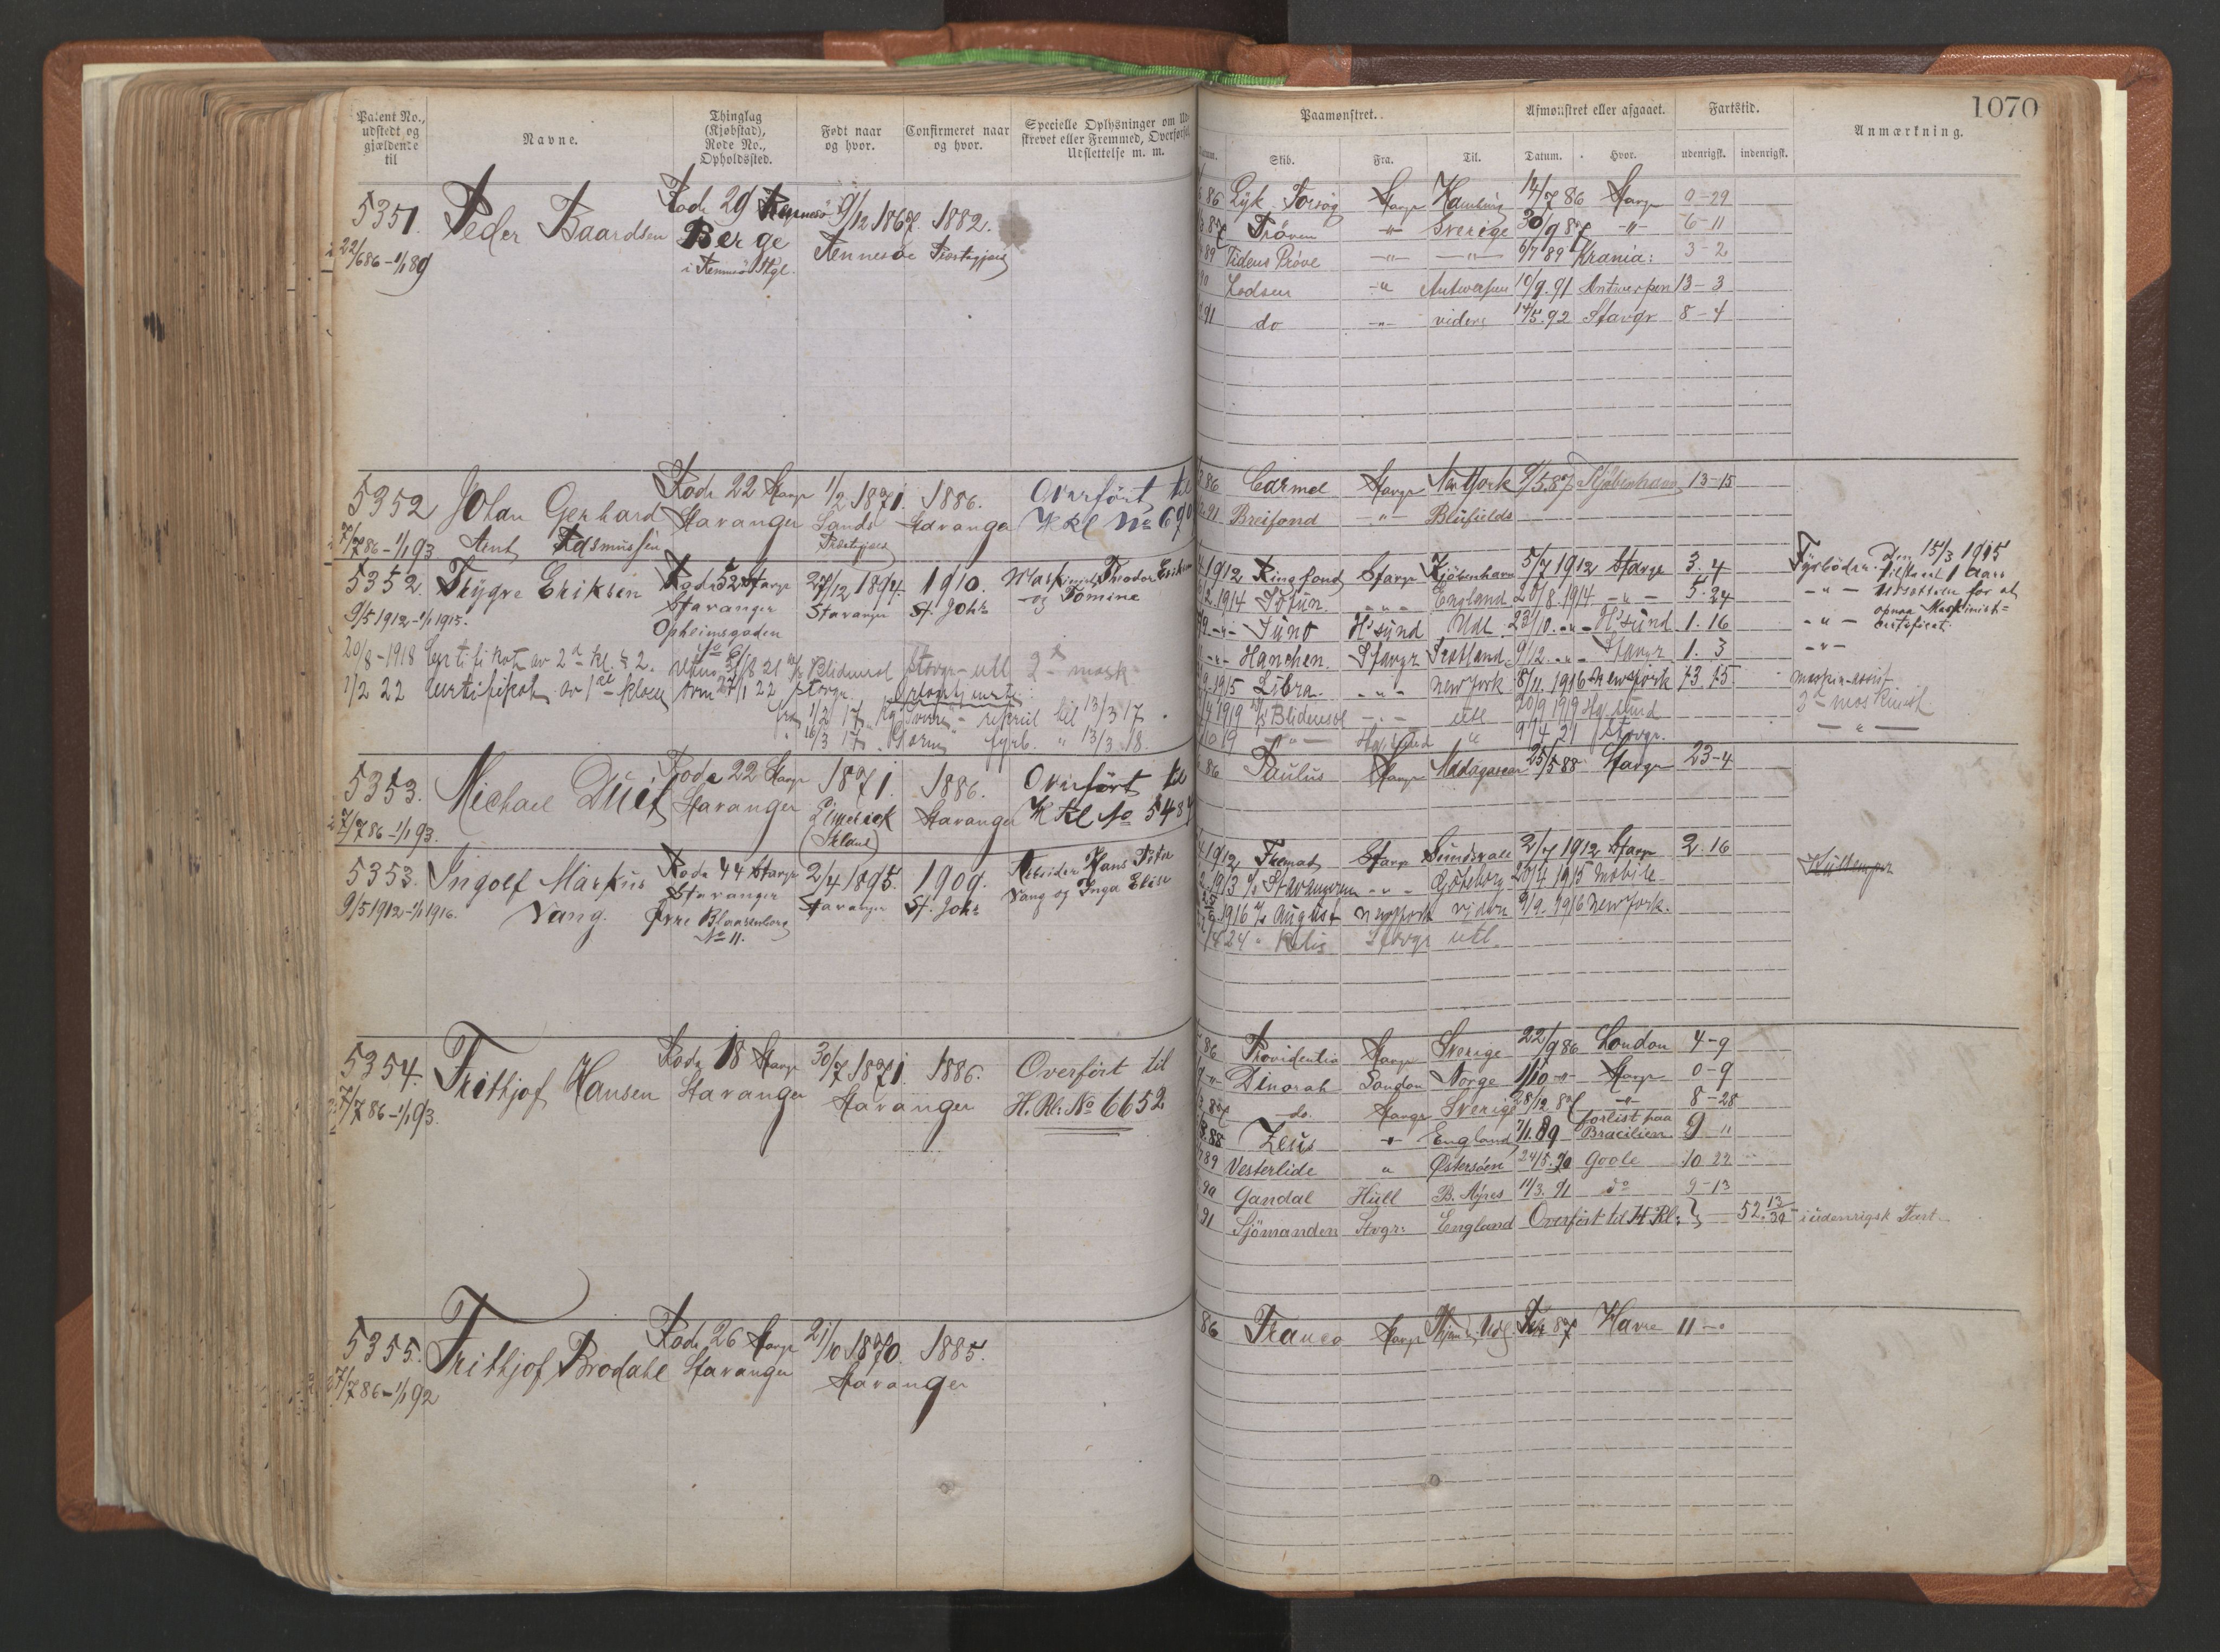 Patent No., udstedt og gjældende til
Navne.
Thinglag (Kjøbstad), Rode No., Opholdssted.
Født naar og hvor.
Confirmeret naar og hvor.
Specielle Oplysninger om Ud-
skrevet eller Fremmed, Overførsel,
Udslettelse m. m.
5351. Peder Baardsen Rode 29 Rennesö 9/12 1867. 1882.
22/6 86 - 1/1 89 Berge Rennesöe Præstegjæld
i Rennesö Skgl.
5352 Johan Gerhard Rode 22 Stavgr 1/2 1871. 1886. Overfört til
Stavanger Sands Stavanger H Rl No 690
7/7 86 - 1/1 93 Arnt Asmussen Præstegjæld
5352. Trygve Eriksen Rode 52 Stavgr 27/12 1894. 1910. Maskinist Theodor Eriksen
9/5 1912 - 1/1 1915. Stavanger Stavanger St. Johs og Tomine
Opheimsgaden
No 61
20/8 - 1918 Certifikat av 2n kl. 31/8 21 Blidensol Stavgr - utl 2n mask
1/2 22 Certifikat av 1ste klasse 27/1 22 Stavgr.
fra 1/2 17 til 13/3 17
16/3 17 fyrb. " 13/3 18.
5353. Michael Duei Rode 22 Stavgr 1871. 1886. Overfört til
7/7 86 - 1/1 93. Stavanger Limerick Stavanger H Rl No 548
5353. Ingolf Markus Rode 44 Stavgr 2/4 1895. 1909. Arbeider Hans Peter
9/5 1912 - 1/1 1916. Vang. Stavanger Stavanger St. Johs Vang og Inga Elise
Øvre Blaasenborg
No 11.
5354. Frithjof Hansen Rode 18 Stavgr 30/7 1871. 1886. Overfört til
7/7 86 - 1/1 93. Stavanger Stavanger H. Rl: No 6652
5355. Frithjof Brodahl Rode 26 Stavgr 21/10 1870. 1885.
7/7 86 - 1/1 92 Stavanger Stavanger
1070
Paamønstret.
Afmønstret eller afgaaet.
Fartstid.
Anmærkning.
Skib. Fra. Til. Datum. Hvor. udenrigsk. indenrigsk.
86 Forsög Stavgr Hamburg 14/7 86 Stavgr 0-29
87 Pröven -"- Sverige 30/9 87 -"- 6-11
89 Tidens Pröve -"- -"- 6/7 89 Krania: 3-2
90 Lodsen -"- Antwerpen 10/9. 91 Antwerpen 13-3
91 do -"- videre 14/5. 92 Stavgr 8-4
86 Carmel Stavgr New York 9/5 87 Kjöbenhavn 13-15
91 Breifond -"- Blufields
1912 Ringfond Stavgr Kjöbenhavn 5/7 1912 Stavgr 3. 4 Fyrböder. Den 15/3 1915
1914 Idun. -"- England 20/8. 1914 -"- 5. 24 -"- tilstaaet 1 Aars Udsættelse for at
-"- Juno H'sund Udl. 23/10. -"- H'sund 1. 16 -"- opnaa Maskinist=certificat
-"- Hanchen. Stavgr Scotland. 9/12. -"- Stavgr 1. 3 -"-
1915 Libra. -"- New York 8/11. 1916 New York 13. 15 maskin-assist
1919 Blidensol -"- utl 20/9 1919 Hg.sund 3n maskinist
10 19 -"- Hg.sund " 9/4 21 Stavgr. -"-
86 Paulus Stavgr Madagascar 25/5 88 Stavgr 23-4
1912 Fremad Stavgr Sundsvall 2/7 1912 Stavgr 2. 16
1913 Stavangeren -"- Gjöteborg 20/4 1915 Mobile
1916 August New York viden 9/9. 1916 New York.
24 Stavgr utl.
86 Providentia Stavgr Sverige 22/9 86 London 4-9
-"- Dinorah London Norge 1/10 -"- Stavgr 0-9
87 -do- Stavgr Sverige 28/12 87 -"- 8-28
88 Zeus -"- England 7/1. 89 forlist paa Bracilien 9 "
89 Vesterlide " Østersöen 24/5. 90 Goole 10 22
90 Gandal Hull B. Ayres 11/3. 91 do 9-13
91 Sjömanden Stvgr: England Overfört til H. Rl: 52. 13/30 i udenrigsk Fart.
86 Franco Stavgr Udl. 87 Havre 11-0